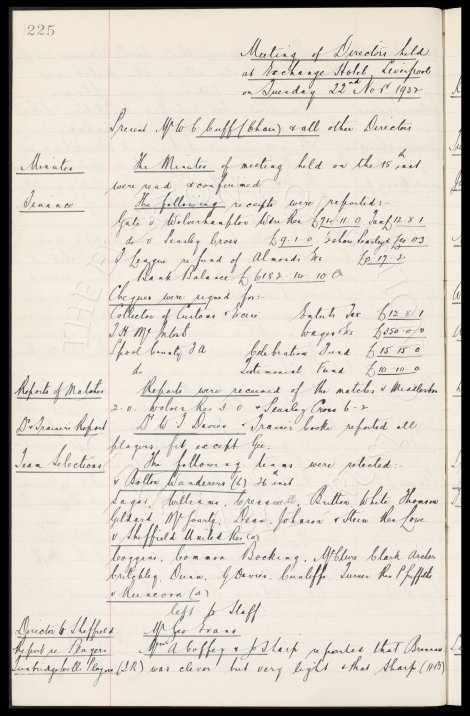 225
Meeting of Directors held
at Exchange Hotel, Liverpool
on Tuesday 22nd Novr 1932
Present Mr W C Cuff (Chair) & all other Directors
Minutes The Minutes of meeting held on the 15th inst
were read & confirmed
Finance The following receipts were reported:-
Gate v Wolverhampton Wdrs Res £74-11-0 Tax £12-8-1
do v Seaforth Cross £9-1-0
F League refund of Almonds £
Bank Balance £6182-14-10
Cheques were signed for:-
Collector of Customs & Excise Entets Tax £12-8-1
T H McIntosh Wages &c £350-0-0
Lpool County F A Celebration Fund £15 15 0
do Testimonial Fund £10 10 0
Reports of Matches Reports were received of the matches v Middlesbro
2-0. Wolves Res 3-0 & Cross 6-2
Dr & Trainer Report Dr W J Davies & Trainer Cooke reported all
players fit except Gee.
Team Selections The following teams were selected:-
v Bolton Wanderers (L) 26th inst
Sagar, Williams, Cresswell, Britton White Thomson
Geldard McGourty, Dean, Johnson & Stein Res
v Sheffield United Res (a)
Coggins, Common Bocking, McClure Clark Archer
Critchley, Dunn, Davies, Cunliffe, Turner Res P Griffiths
v Runcorn (a)
left to Staff
Director to Sheffield Mr Geo Evans
Report re Players Messrs A Coffey & J Sharp reported that
Tunbridge Wells Players (I.R.) was clever but very light & that Sharp